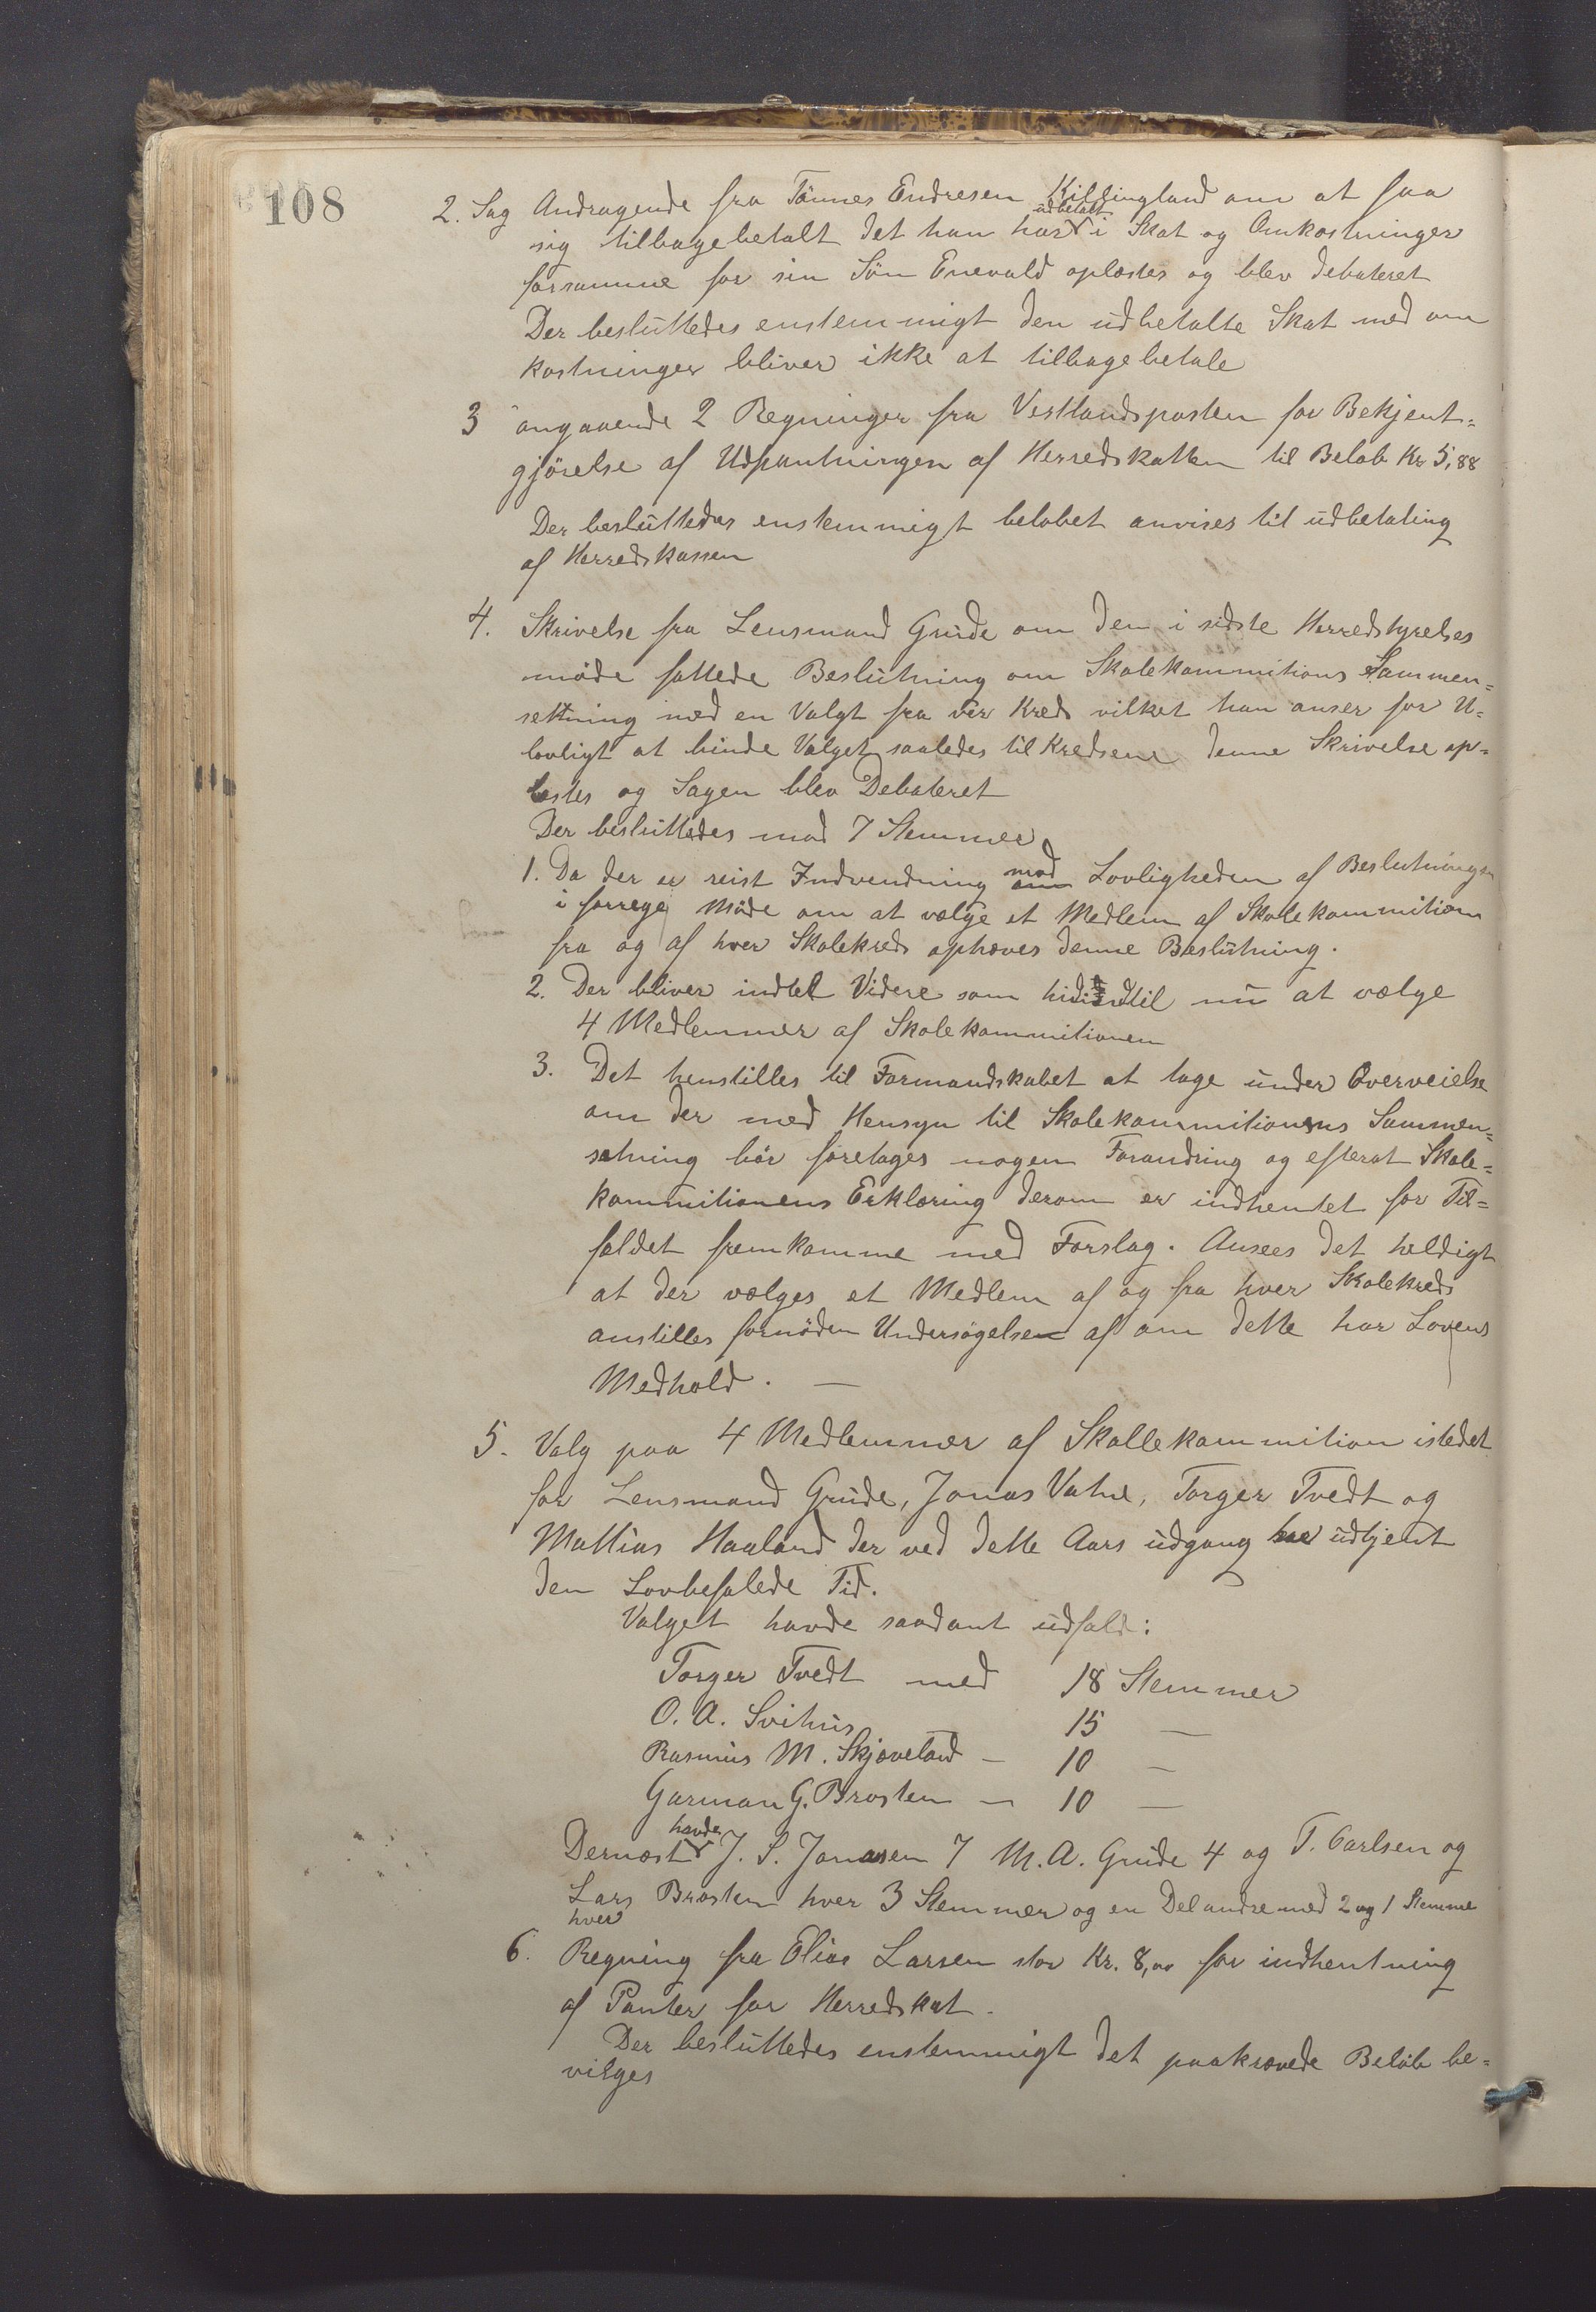 108
2. Sag Andragende fra Tönnes Endresen Killingland om at faa
sig tilbagebetalt det han har udbetalt i Skat og Omkostninger
forsamme for sin Sön Enevald oplæstes og blev debateret
Der besluttedes enstemmigt den udbetalte Skat med om
kostninger bliver ikke at tilbagebetale
3 angaaende 2 Regninger fra Vestlandsposten for Bekjent=
gjörelse af Udpantningen af Herredskatten til Beløb Kr 5,88
Der besluttedes enstemmigt beløbet anvises til udbetaling
af Herredskassen
4. Skrivelse fra Lensmand Grude om den i sidste Herredstyrelses
möde fattede Beslutning om Skolekommitions Sammen=
setning med en Valgt fra vær Kreds vilket han anser for U=
lovligt at binde Valget saaledes til Kredsene denne Skrivelse op=
læstes og Sagen blev Debateret
Der besluttedes mod 7 Stemmer
1. Da der er reist Indvendning mod om Lovligheden af Beslutningen
i forrege Möde om at vælge et Medlem af Skolekommitionen
fra og af hver Skolekreds ophæves denne Beslutning.
2. Der bliver indtil Videre som hidindtil nu at vælge
4 Medlemmer af Skolekommitionen
3. Det henstilles til Formandskabet at tage under Overveielse
om der med Hensyn til Skolekommitionens Sammen=
sætning bör foretages nogen Forandring og efterat Skole=
kommitionens Erklæring derom er indhentet for Til=
fældet fremkomme med Forslag. Ansees det heldigt
at der vælges et Medlem af og fra hver Skolekreds
anstilles fornöden Undersögelse af om dette har Lovens
Medhold. —
5. Valg paa 4 Medlemmer af Skollekommition istedet
for Lensmand Grude, Jonas Vatne, Torger Tvedt og
Mattias Haaland der ved dette Aars udgang har udtjent
den Lovbefalede Tid.
Valget havde saadant udfald:
Torger Tvedt med 18 Stemmer
O. A. Svihus 15 —
Rasmus M. Skjæveland — 10 —
Garman G. Brosten — 10 —
Dernæst havde J. S. Jonasen 7 M. A. Grude 4 og T. Carlsen og
Lars Brosten hver 3 Stemmer og en Del andre med 2 og 1 Stemme
hver
6. Regning fra Elias Larsen stor Kr. 8,00 for indhentning
af Panter for Herredskat.
Der besluttedes enstemmigt det paakrævede Beløb be=
vilges